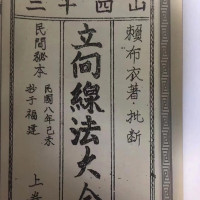 十四山
賴布衣著·批断
立向線法大全
民間秘本
民國八年己未
抄于福建
上卷